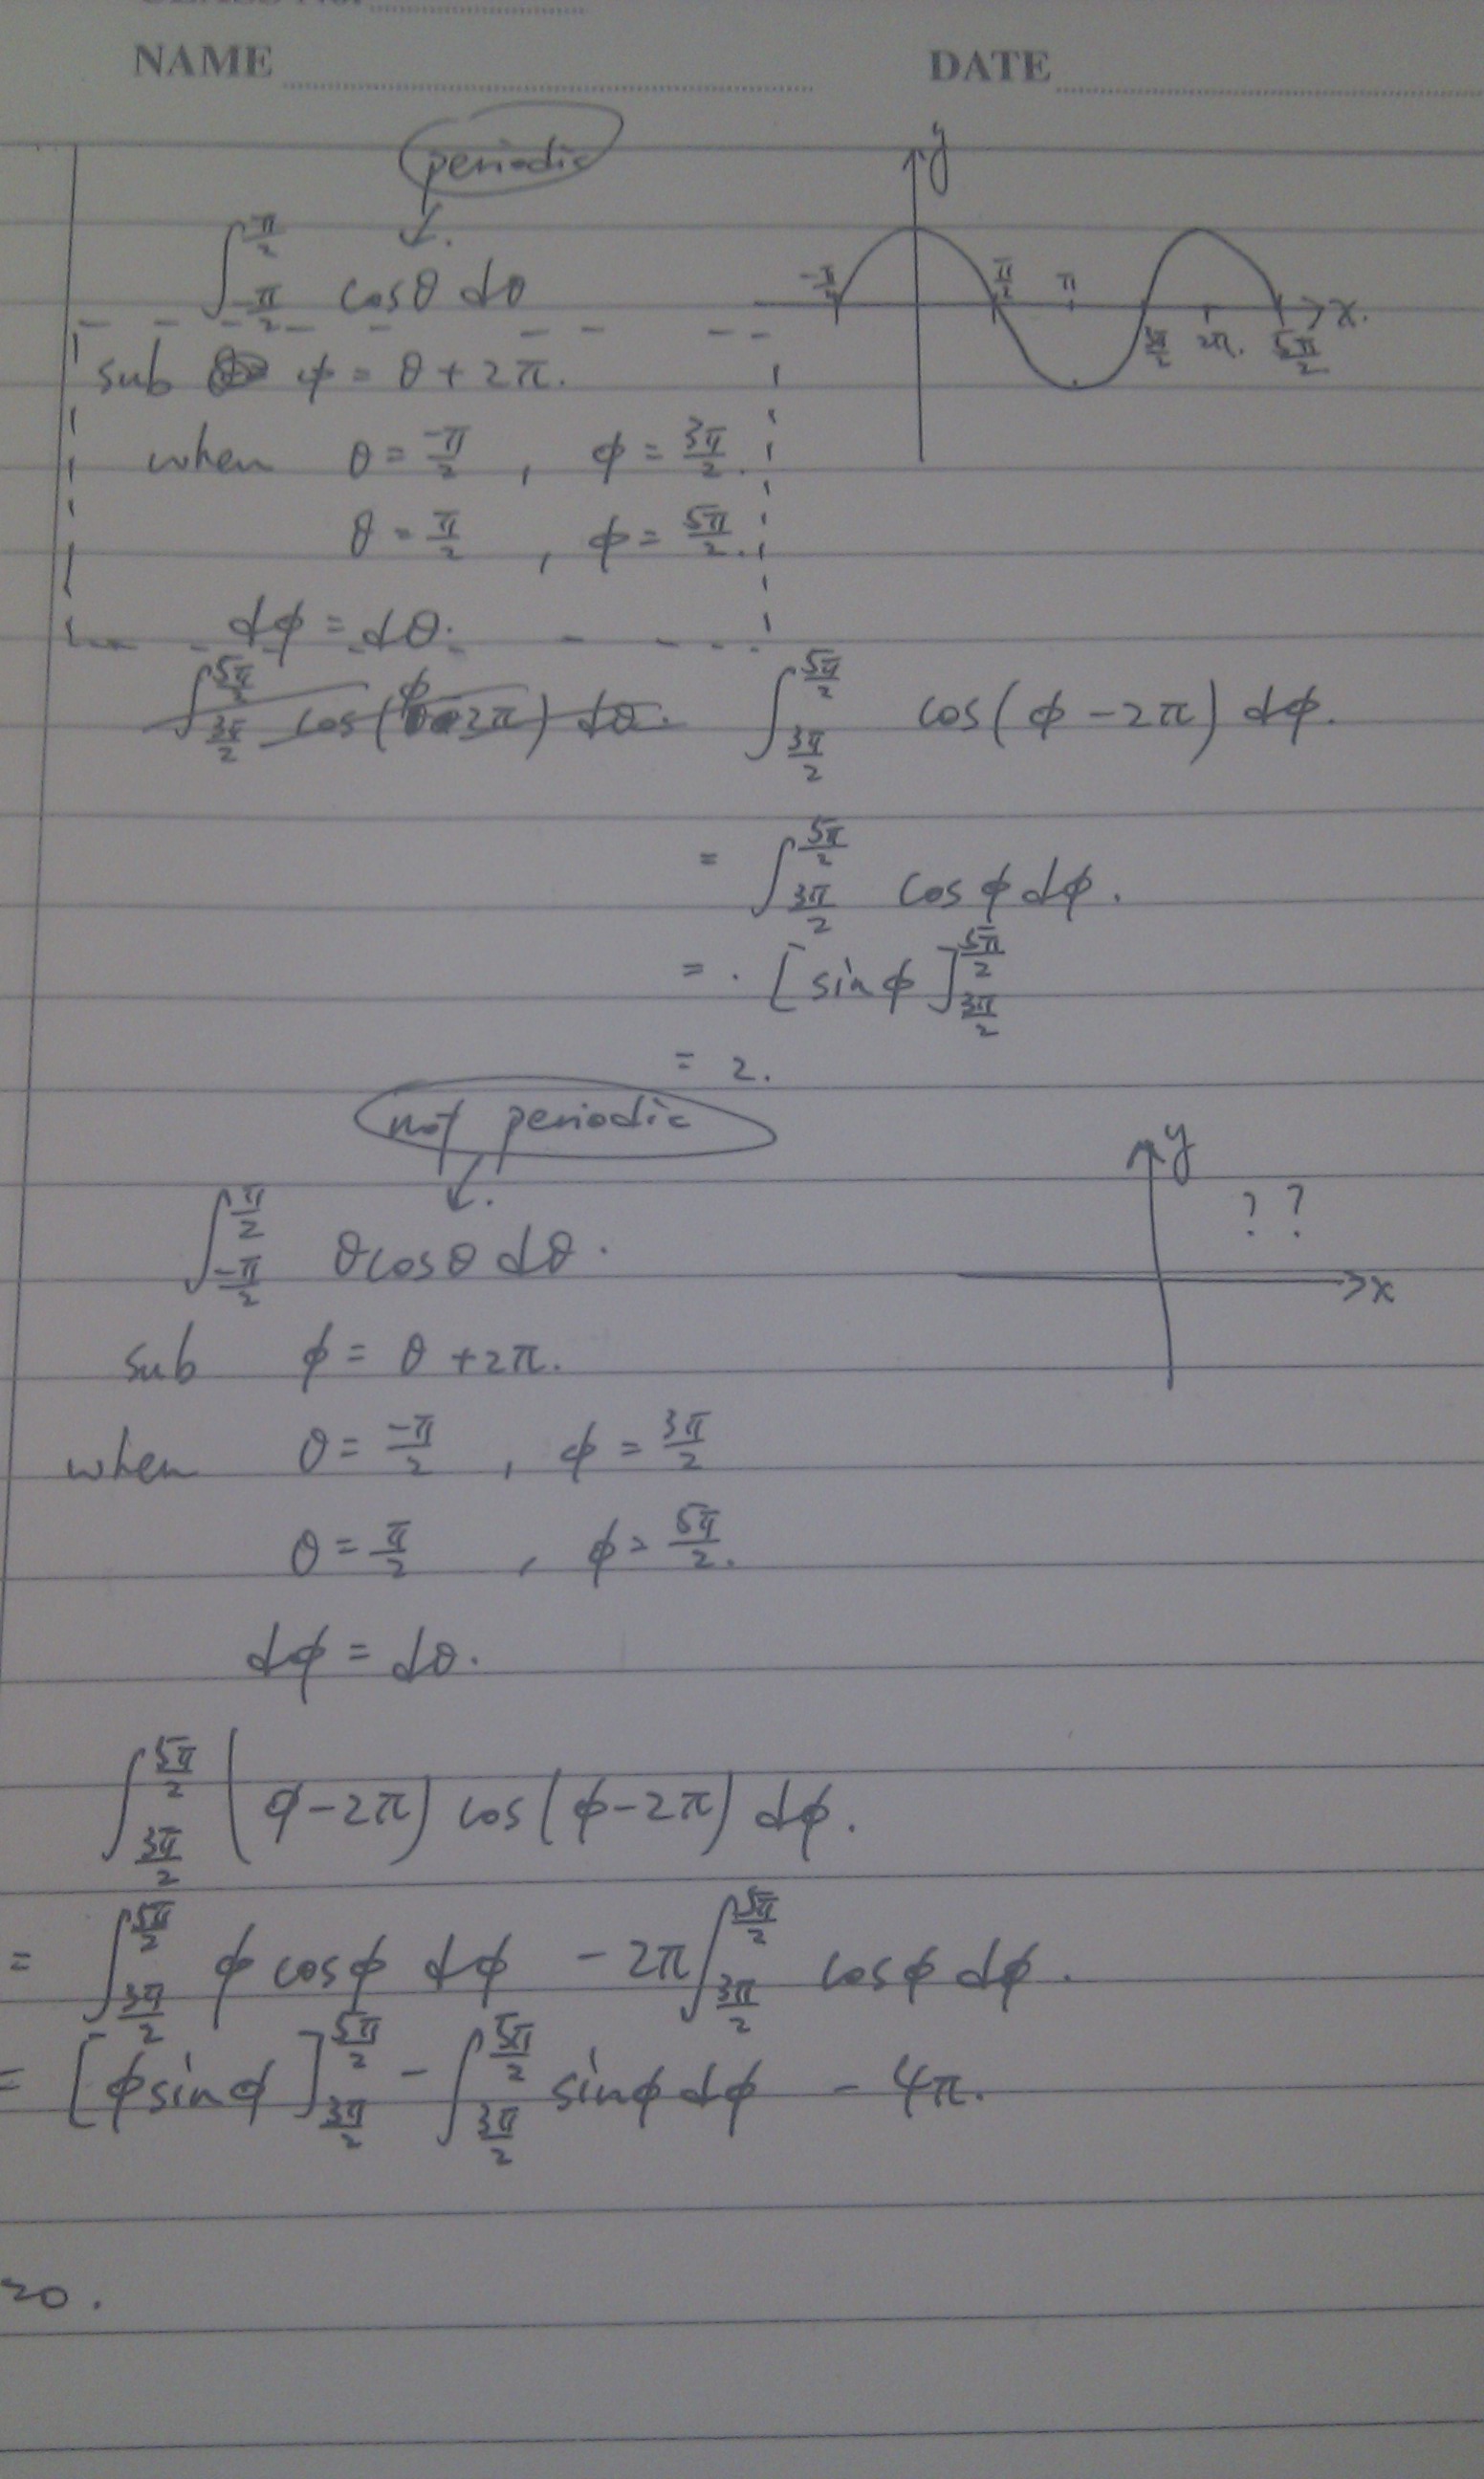 CLASS No.
NAME
DATE
periodic
∫_{-π/2}^{π/2} cosθ dθ
y
-π/2 π/2 π 3π/2 2π. 5π/2 x.
sub φ = θ + 2π.
when θ = -π/2 , φ = 3π/2.
θ = π/2 , φ = 5π/2.
dφ = dθ.
∫_{3π/2}^{5π/2} cos(φ - 2π) dφ.
= ∫_{3π/2}^{5π/2} cosφ dφ.
= [sinφ]_{3π/2}^{5π/2}
= 2.
not periodic
∫_{-π/2}^{π/2} θcosθ dθ.
y
? ?
x
sub φ = θ + 2π.
when θ = -π/2 , φ = 3π/2
θ = π/2 , φ = 5π/2.
dφ = dθ.
∫_{3π/2}^{5π/2} (φ-2π) cos(φ-2π) dφ.
= ∫_{3π/2}^{5π/2} φ cosφ dφ - 2π ∫_{3π/2}^{5π/2} cosφ dφ.
= [φsinφ]_{3π/2}^{5π/2} - ∫_{3π/2}^{5π/2} sinφ dφ - 4π.
=0.